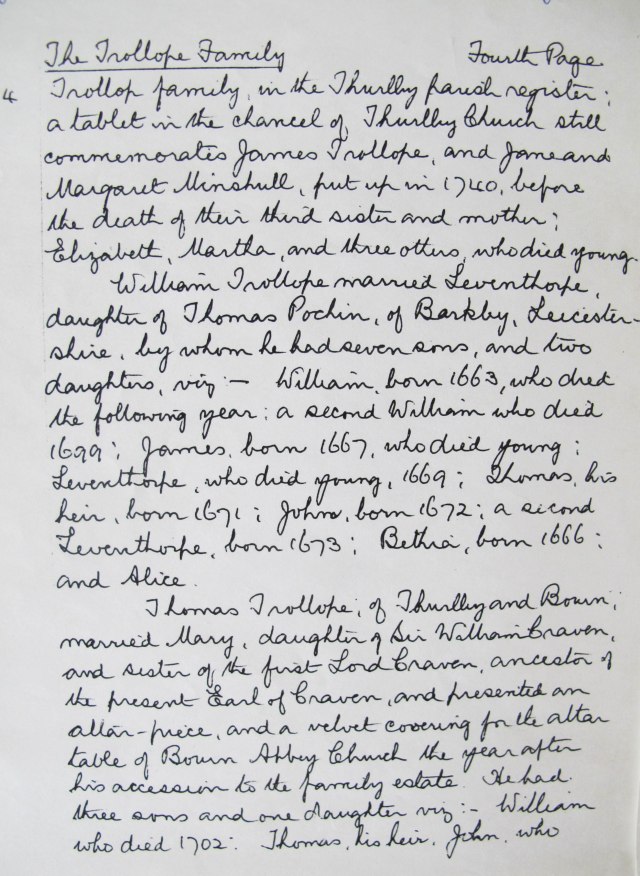 The Trollope Family Fourth Page
4 Trollop family, in the Thurlby parish register;
a tablet in the chancel of Thurlby Church still
commemorates James Trollope, and Jane and
Margaret Minshull, put up in 1740, before
the death of their third sister and mother;
Elizabeth, Martha, and three others, who died young.
William Trollope married Leventhorpe,
daughter of Thomas Pochin, of Barkby, Leicester-
shire, by whom he had seven sons, and two
daughters, viz:— William, born 1663, who died
the following year: a second William who died
1699; James, born 1667, who died young;
Leventhorpe, who died young, 1669; Thomas, his
heir, born 1671; John, born 1672; a second
Leventhorpe, born 1673; Bethia, born 1666;
and Alice.
Thomas Trollope, of Thurlby and Bourn,
married Mary, daughter of Sir William Craven,
and sister of the first Lord Craven, ancestor of
the present Earl of Craven, and presented an
altar-piece, and a velvet covering for the altar
table of Bourn Abbey Church the year after
his accession to the family estate. He had
three sons and one daughter viz:- William
who died 1702: Thomas, his heir, John, who